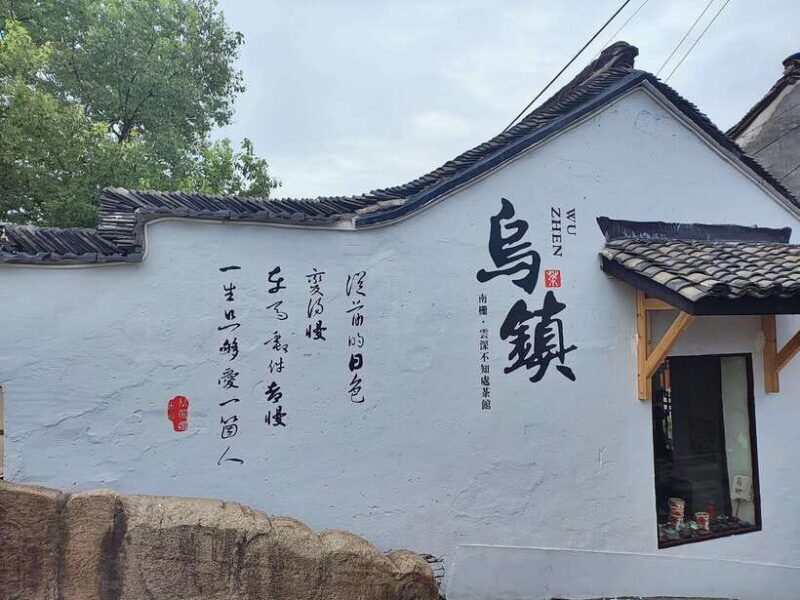 烏鎮
WU
ZHEN
茶
南柵·雲深不知處茶館
從前的日色
變得慢
車馬郵件都慢
一生只够愛一箇人